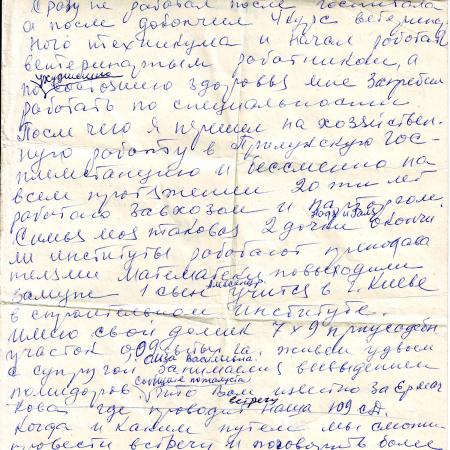 Сразу не работал после госпиталя
а после докончил 4 курс ветеринар
ного техникума и начал работать
ветеринарным работником, а
по ухудшению состоянию здоровья мне запретили
работать по специальности.
После чего я перешел на хозяйствен-
ную работу в Прилукскую гос-
племстанцию и бессменно на
всем протяжении 20 ти лет
работаю завхозом и парторгом.
Семья моя таковая 2 дочки окончи
ли институты работают преподава
телями математики повыходили
замуж 1 сын учится в г. Киеве
в строительном институте.
Имею свой домик 7х9 приусадебн
участок 0,09 живем вдвоем
с супругой Лиза Васильевна занимаемся выведением
помидоров. Сообщите пожалуйста что Вам известно за Ермо
кова где проводит встречу наша 109 сд.
Когда и каким путем мы сможем
провести встречу и поговорить более